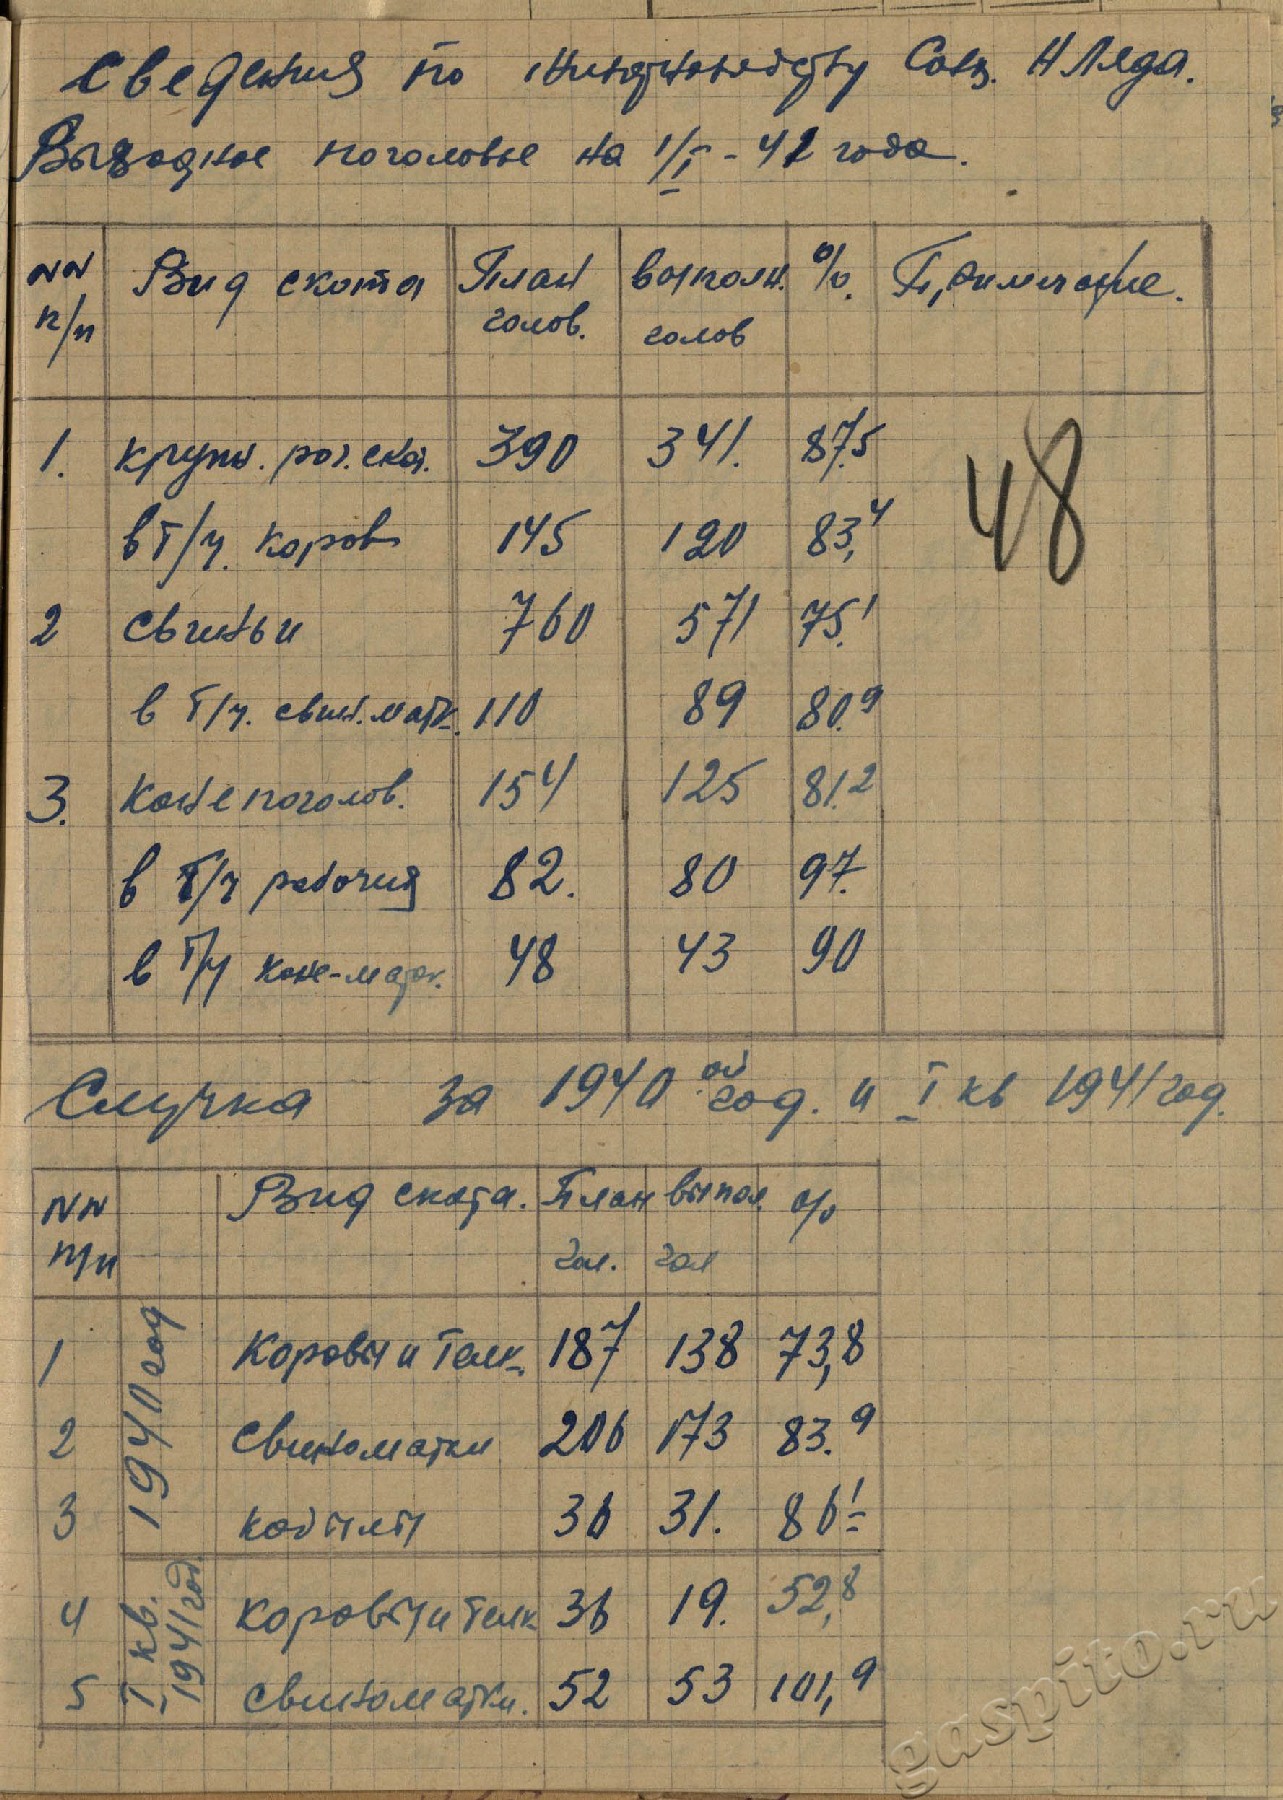 Сведения по животноводству Совх. Н Ляда.
Выходное поголовье на 1/I - 41 года.
NN п/п Вид скота План голов. выполн. голов % Примичание.
1. крупн. рог. скот. 390 341. 87,5
в т/ч. коров 145 120 83,4
2 свиньи 760 571 75.1
в т/ч. свин.матк. 110 89 80.9
3. конепоголов. 154 125 81.2
в т/ч рабочия 82. 80 97.
в т/ч коне-маток. 48 43 90
48
Случка за 1940 ой год. и I кв 1941 год.
NN п/п Вид скота. План гол. выпол. гол %
1940 год
1 Коровы и телк. 187 138 73,8
2 свиноматки 206 173 83.9
3 кобылы 36 31. 86 1
I кв. 1941 год.
4 коровы и телк 36 19. 52,8
5 свиноматки. 52 53 101,9
gaspito.ru